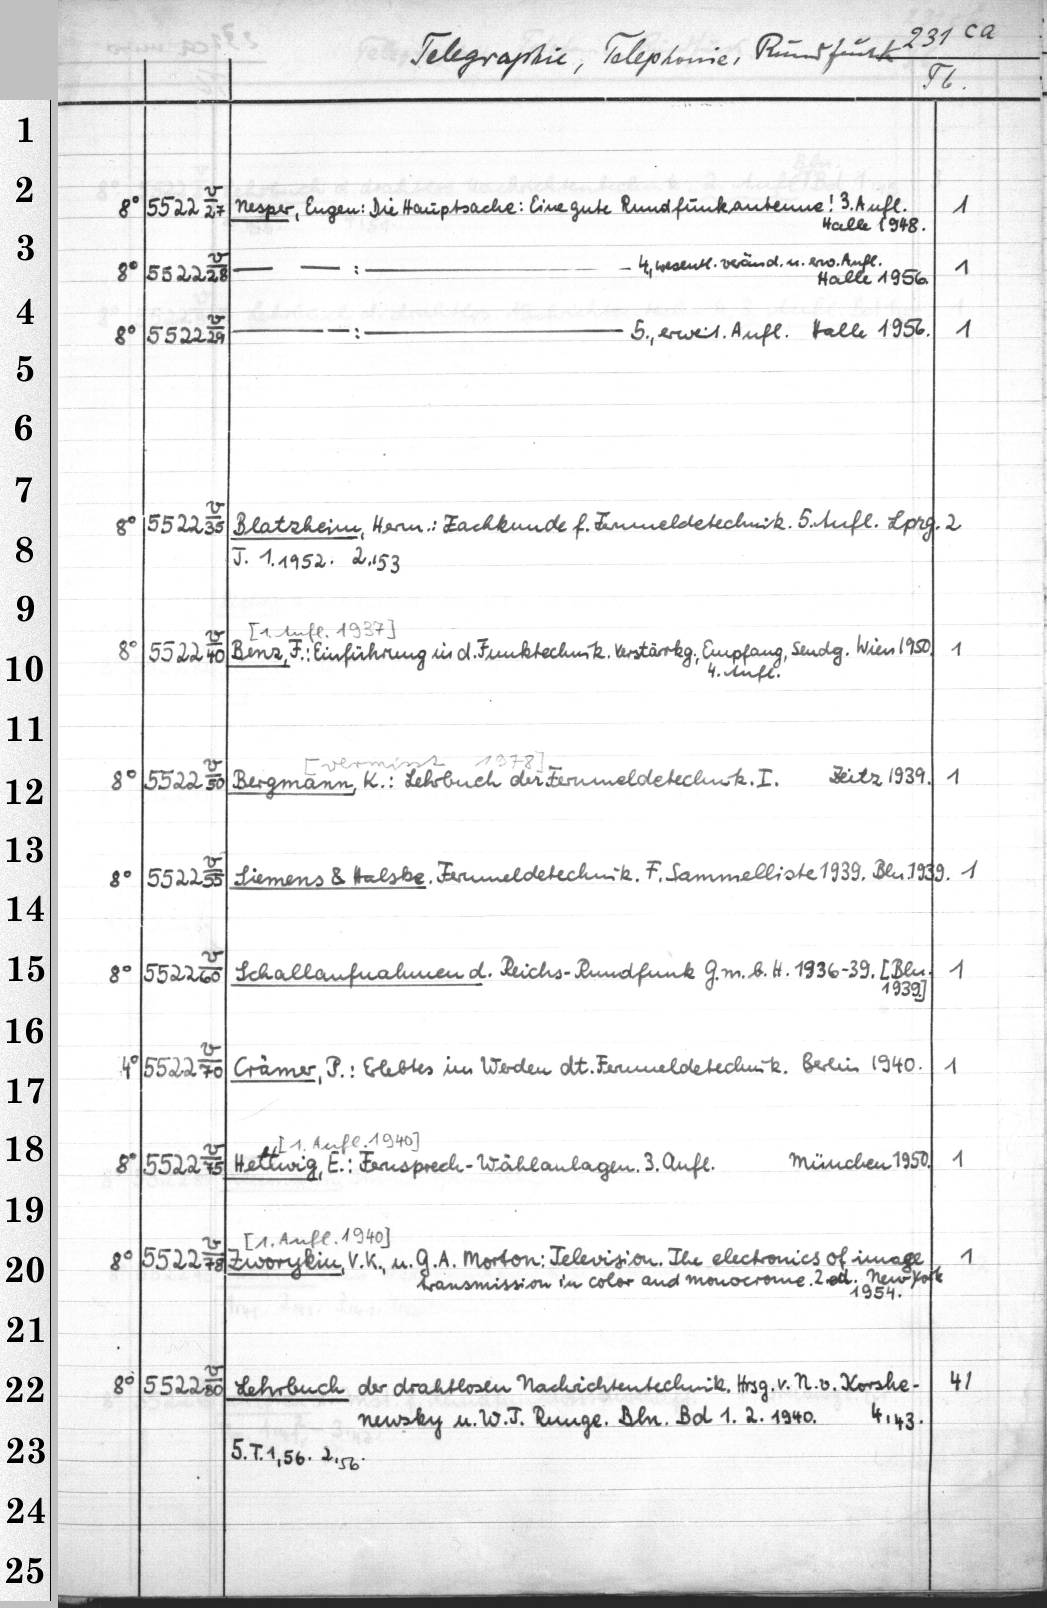 231 ca
Telegraphie, Telephonie, Rundfunk
Tb.
1
2
8° 5522 v/27 Nesper, Eugen: Die Hauptsache: Eine gute Rundfunkantenne! 3. Aufl. 1
Halle 1948.
3
8° 5522 v/28 — — : — 4., wesentl. veränd. u. erw. Aufl. 1
Halle 1956.
4
8° 5522 v/29 — — : — 5., erweit. Aufl. Halle 1956. 1
5
6
7
8° 5522 v/35 Blatzheim, Herm.: Fachkunde f. Fernmeldetechnik. 5. Aufl. Lpzg. 2
8
T. 1.1952. 2.,53
9
[1. Aufl. 1937]
8° 5522 v/40 Benz, F.: Einführung in d. Funktechnik. Verstärkg., Empfang, Sendg. Wien 1950. 1
10
4. Aufl.
11
[vermisst 1978]
8° 5522 v/50 Bergmann, K.: Lehrbuch der Fernmeldetechnik. I. Zeitz 1939. 1
12
13
8° 5522 v/55 Siemens & Halske. Fernmeldetechnik. F. Sammelliste 1939. Bln. 1939. 1
14
15
8° 5522 v/60 Schallaufnahmen d. Reichs-Rundfunk G.m.b.H. 1936-39. [Bln. 1
1939]
16
4° 5522 v/70 Crämer, P.: Erlebtes im Werden dt. Fernmeldetechnik. Berlin 1940. 1
17
18
[1. Aufl. 1940]
8° 5522 v/75 Hettwig, E.: Fernsprech-Wählanlagen. 3. Aufl. München 1950. 1
19
[1. Aufl. 1940]
20
8° 5522 v/78 Zworykin, V.K., u. G.A. Morton: Television. The electronics of image 1
transmission in color and monocrome. 2. ed. New York
1954.
21
22
8° 5522 v/80 Lehrbuch der drahtlosen Nachrichtentechnik. Hrsg. v. N. v. Korshe- 41
newsky u. W.T. Runge. Bln. Bd 1. 2. 1940. 4,43.
23
5. T. 1,56. 2.,56.
24
25